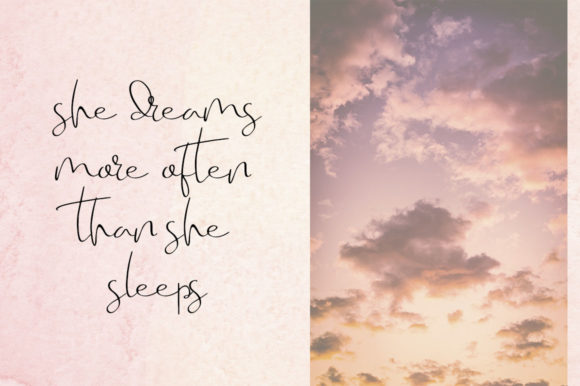 she dreams
more often
than she
sleeps